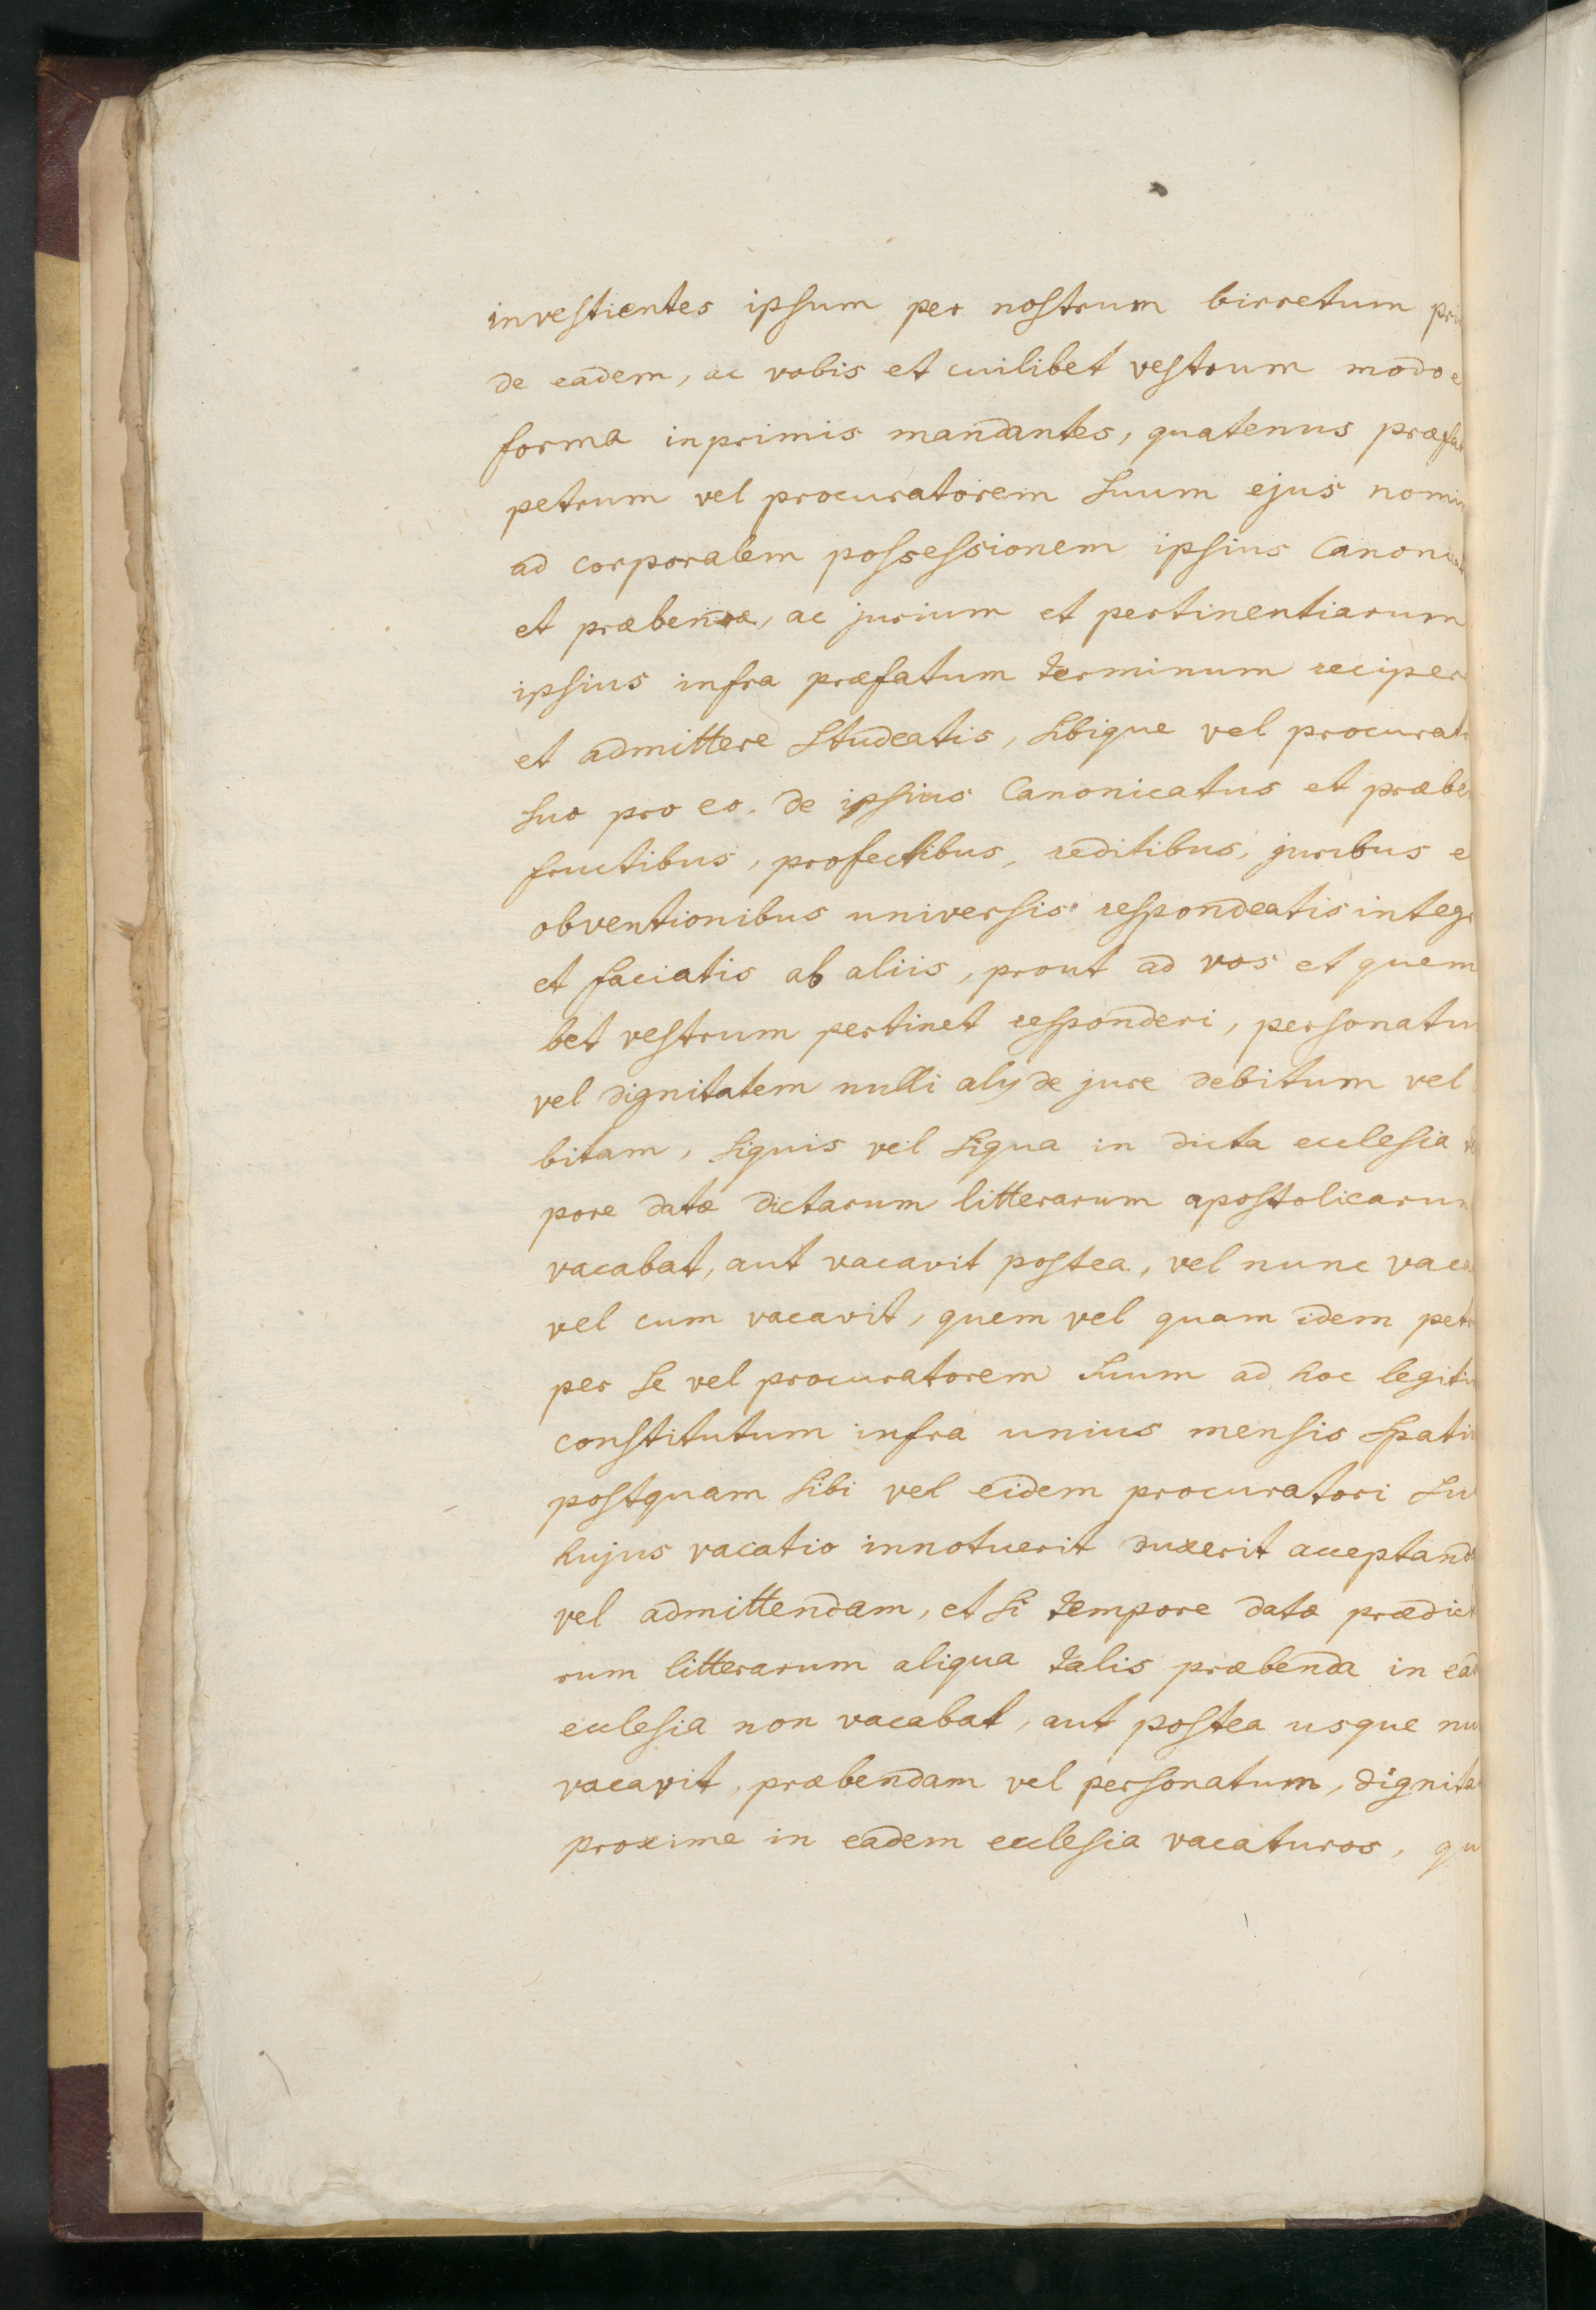 investientes ipsum per nostrum birretum pri
de eadem, ac vobis et cuilibet vestrum modo e
forma inprimis mandantes, quatenus præfa
petrum vel procuratorem suum ejus nomi
ad corporalem possessionem ipsius Canonic
et præbendæ, ac jurium et pertinentiarum
ipsius infra præfatum terminum reciper
et admittere studeatis, sibique vel procurat
suo pro eo. de ipsius Canonicatus et præbe
fructibus, profectibus, reditibus, juribus e
obventionibus universis respondeatis integr
et faciatis ab aliis, prout ad vos et quem
bet vestrum pertinet responderi, personatu
vel dignitatem nulli alÿ de jure debitum vel
bitam, siquis vel siqua in dicta ecclesia
pore datæ dictarum litterarum apostolicarum
vacabat, aut vacavit postea, vel nunc vaca
vel cum vacavit, quem vel quam idem petr
per se vel procuratorem suum ad hoc legiti
constitutum infra unius mensis spati
postquam sibi vel eidem procuratori su
hujus vacatio innotuerit duxerit acceptand
vel admittendam, et si tempore datæ prædict
rum litterarum aliqua talis præbenda in ead
ecclesia non vacabat, aut postea usque nu
vacavit, præbendam vel personatum, dignita
proxime in eadem ecclesia vacaturos, qu